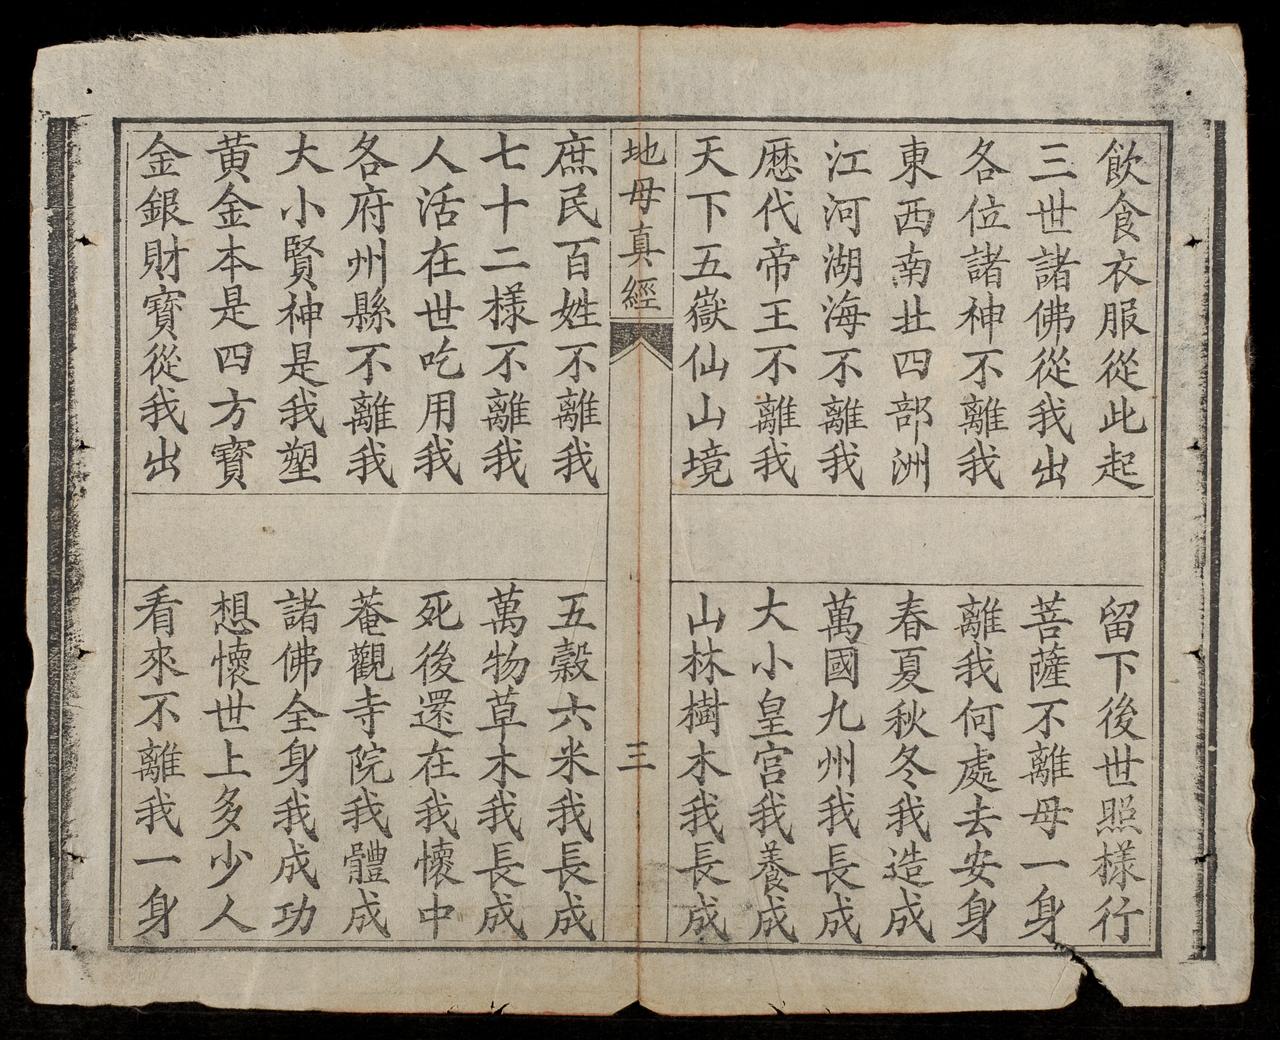 飲食衣服從此起
留下後世照樣行
三世諸佛從我出
菩薩不離母一身
各位諸神不離我
離我何處去安身
東西南北四部洲
春夏秋冬我造成
江河湖海不離我
萬國九州我長成
歷代帝王不離我
大小皇宮我養成
天下五嶽仙山境
山林樹木我長成
地母真經
三
庶民百姓不離我
五穀六米我長成
七十二樣不離我
萬物草木我長成
人活在世吃用我
死後還在我懷中
各府州縣不離我
菴觀寺院我體成
大小賢神是我塑
諸佛全身我成功
黃金本是四方寶
想懷世上多少人
金銀財寶從我出
看來不離我一身